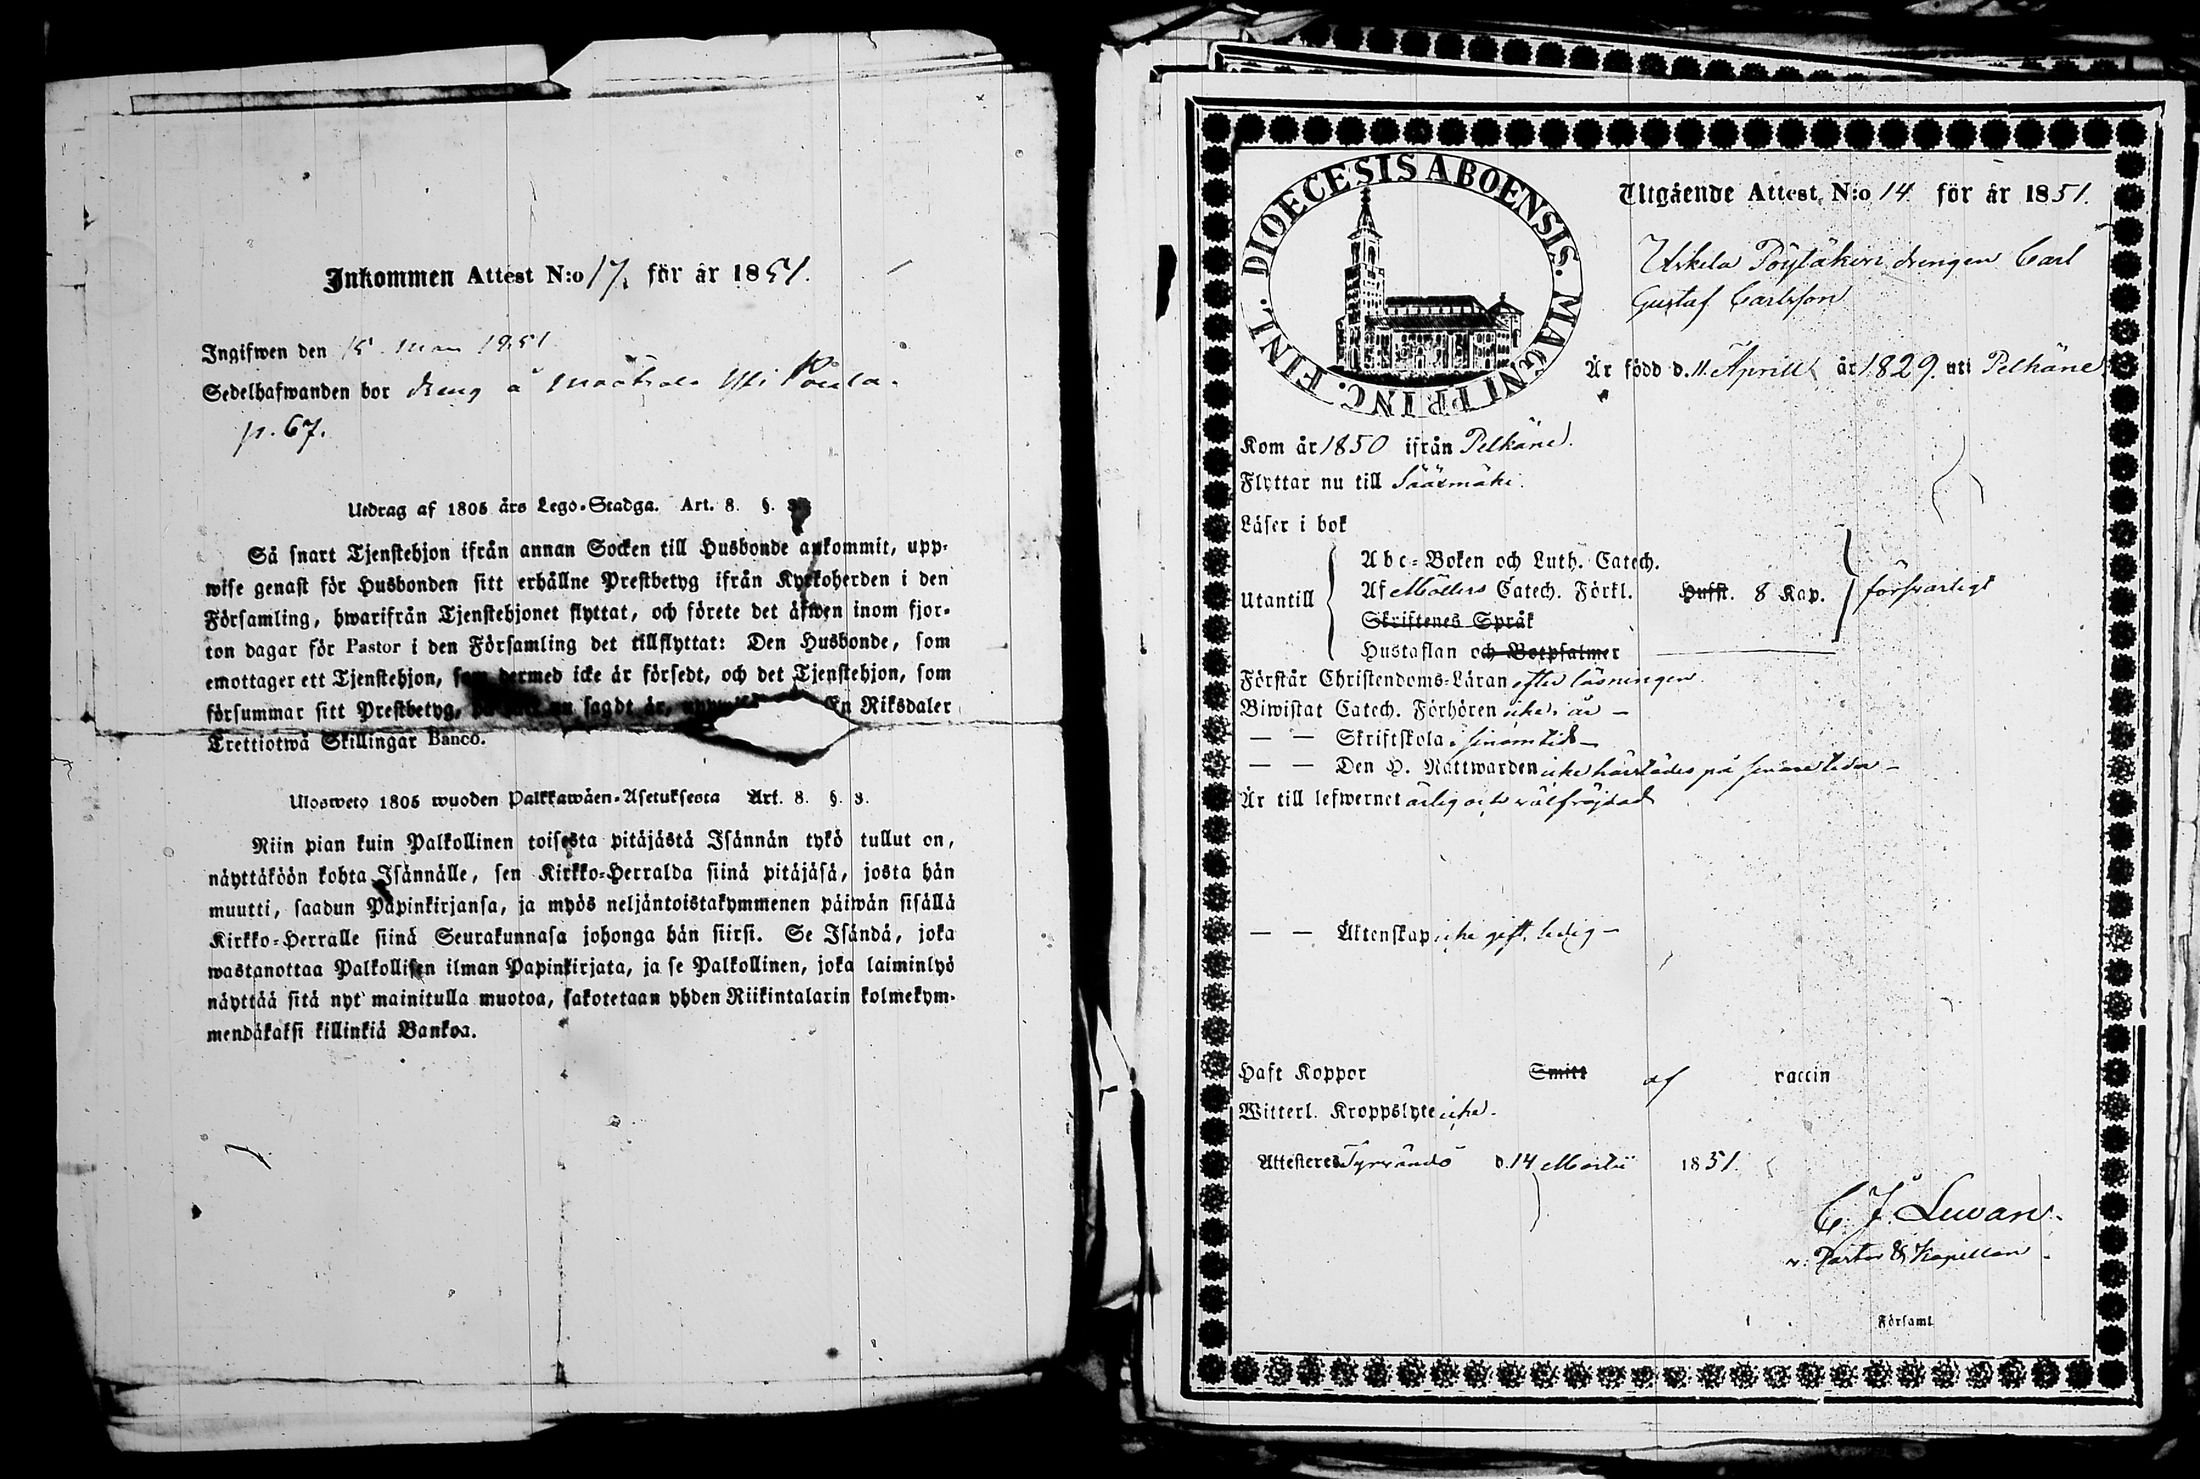 Inkommen Attest N:o 17. för år 1851.
Ingifwen den 15 1851
Sedelhafwanden bor dreng å
p. 67.
Utdrag af 1805 års Lego-Stadga. Art. 8. §.
Så snart Tjenstehjon ifrån annan Socken till Husbonde ankommit, upp-
wise genast för Husbonden sitt erhållne Prestbetyg ifrån Kyrkoherden i den
Församling, hwarifrån Tjenstehjonet flyttat, och förete det äfwen inom fjor-
ton dagar för Pastor i den Församling det tillflyttat: Den Husbonde, som
emottager ett Tjenstehjon, som dermed icke är försedt, och det Tjenstehjon, som
försummar sitt Prestbetyg, nu sagdt är, En Riksdaler
Trettiotwå Skillingar Banco.
Ulosweto 1805 wuoden Palkkawäen-Asetuksesta Art. 8. §. 3.
Niin pian kuin Palkollinen toisesta pitäjästä Isännän tykö tullut on,
näyttäköön kohta Isännälle, sen Kirkko-Herralda siinä pitäjäsä, josta hän
muutti, saadun Papinkirjansa, ja myös neljäntoistakymmenen päiwän sisällä
Kirkko-Herralle siinä Seurakunnasa johonga hän siirsi. Se Isändä, joka
wastanottaa Palkollisen ilman Papinkirjata, ja se Palkollinen, joka laiminlyö
näyttää sitä nyt mainitulla muotoa, sakotetaan yhden Riikintalarin kolmekym-
mendäkaksi killinkiä Bankoa.
DIOECESIS ABOENSIS. MAGNI PRINC. FINL.
Utgående Attest, N:o 14 för år 1851.
Urkela drengen Carl
Gustaf Carlsson
Är född d. 11 Aprill år 1829. uti Pelkäne
Kom år 1850 ifrån Pelkäne.
Flyttar nu till Sääxmäki.
Läser i bok
Abc-Boken och Luth. Catech.
Utantill Af Möllers Catech. Förkl. Hufst. 8 Kap. försvarligt
Skriftenes Språk
Hustaflan och Botpsalmer
Förstår Christendoms-Läran efter läsningen
Biwistat Catech. Förhören icke i år —
— — Skriftskola i sinom tid —
— — Den H. Nattwarden icke härstädes på senare tider —
Är till lefwernet ärlig och wälfrejdad
— — Äktenskap icke gift, ledig —
Haft Koppor Smitt af vaccin
Witterl. Kroppslyte icke.
Attesteres Tyrvändö d. 14 Martii 1851.
C. J. Luvan.
v. Pastor & Kapellan.
Församl